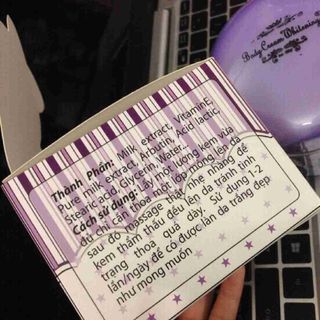 Body Cream Whitening
Thành Phần: Milk extract, VitaminE,
Pure milk extract, Arbutin, Acid lactic,
Stearic acid, Glycerin, Water...
Cách sử dụng: Lấy một lượng kem vừa
đủ chỉ cần thoa một lớp mỏng lên da
sau đó massage thật nhẹ nhàng để
kem thẩm thấu đều lên da tránh tình
trạng thoa quá dày. Sử dụng 1-2
lần/ngày để có được làn da trắng đẹp
như mong muốn